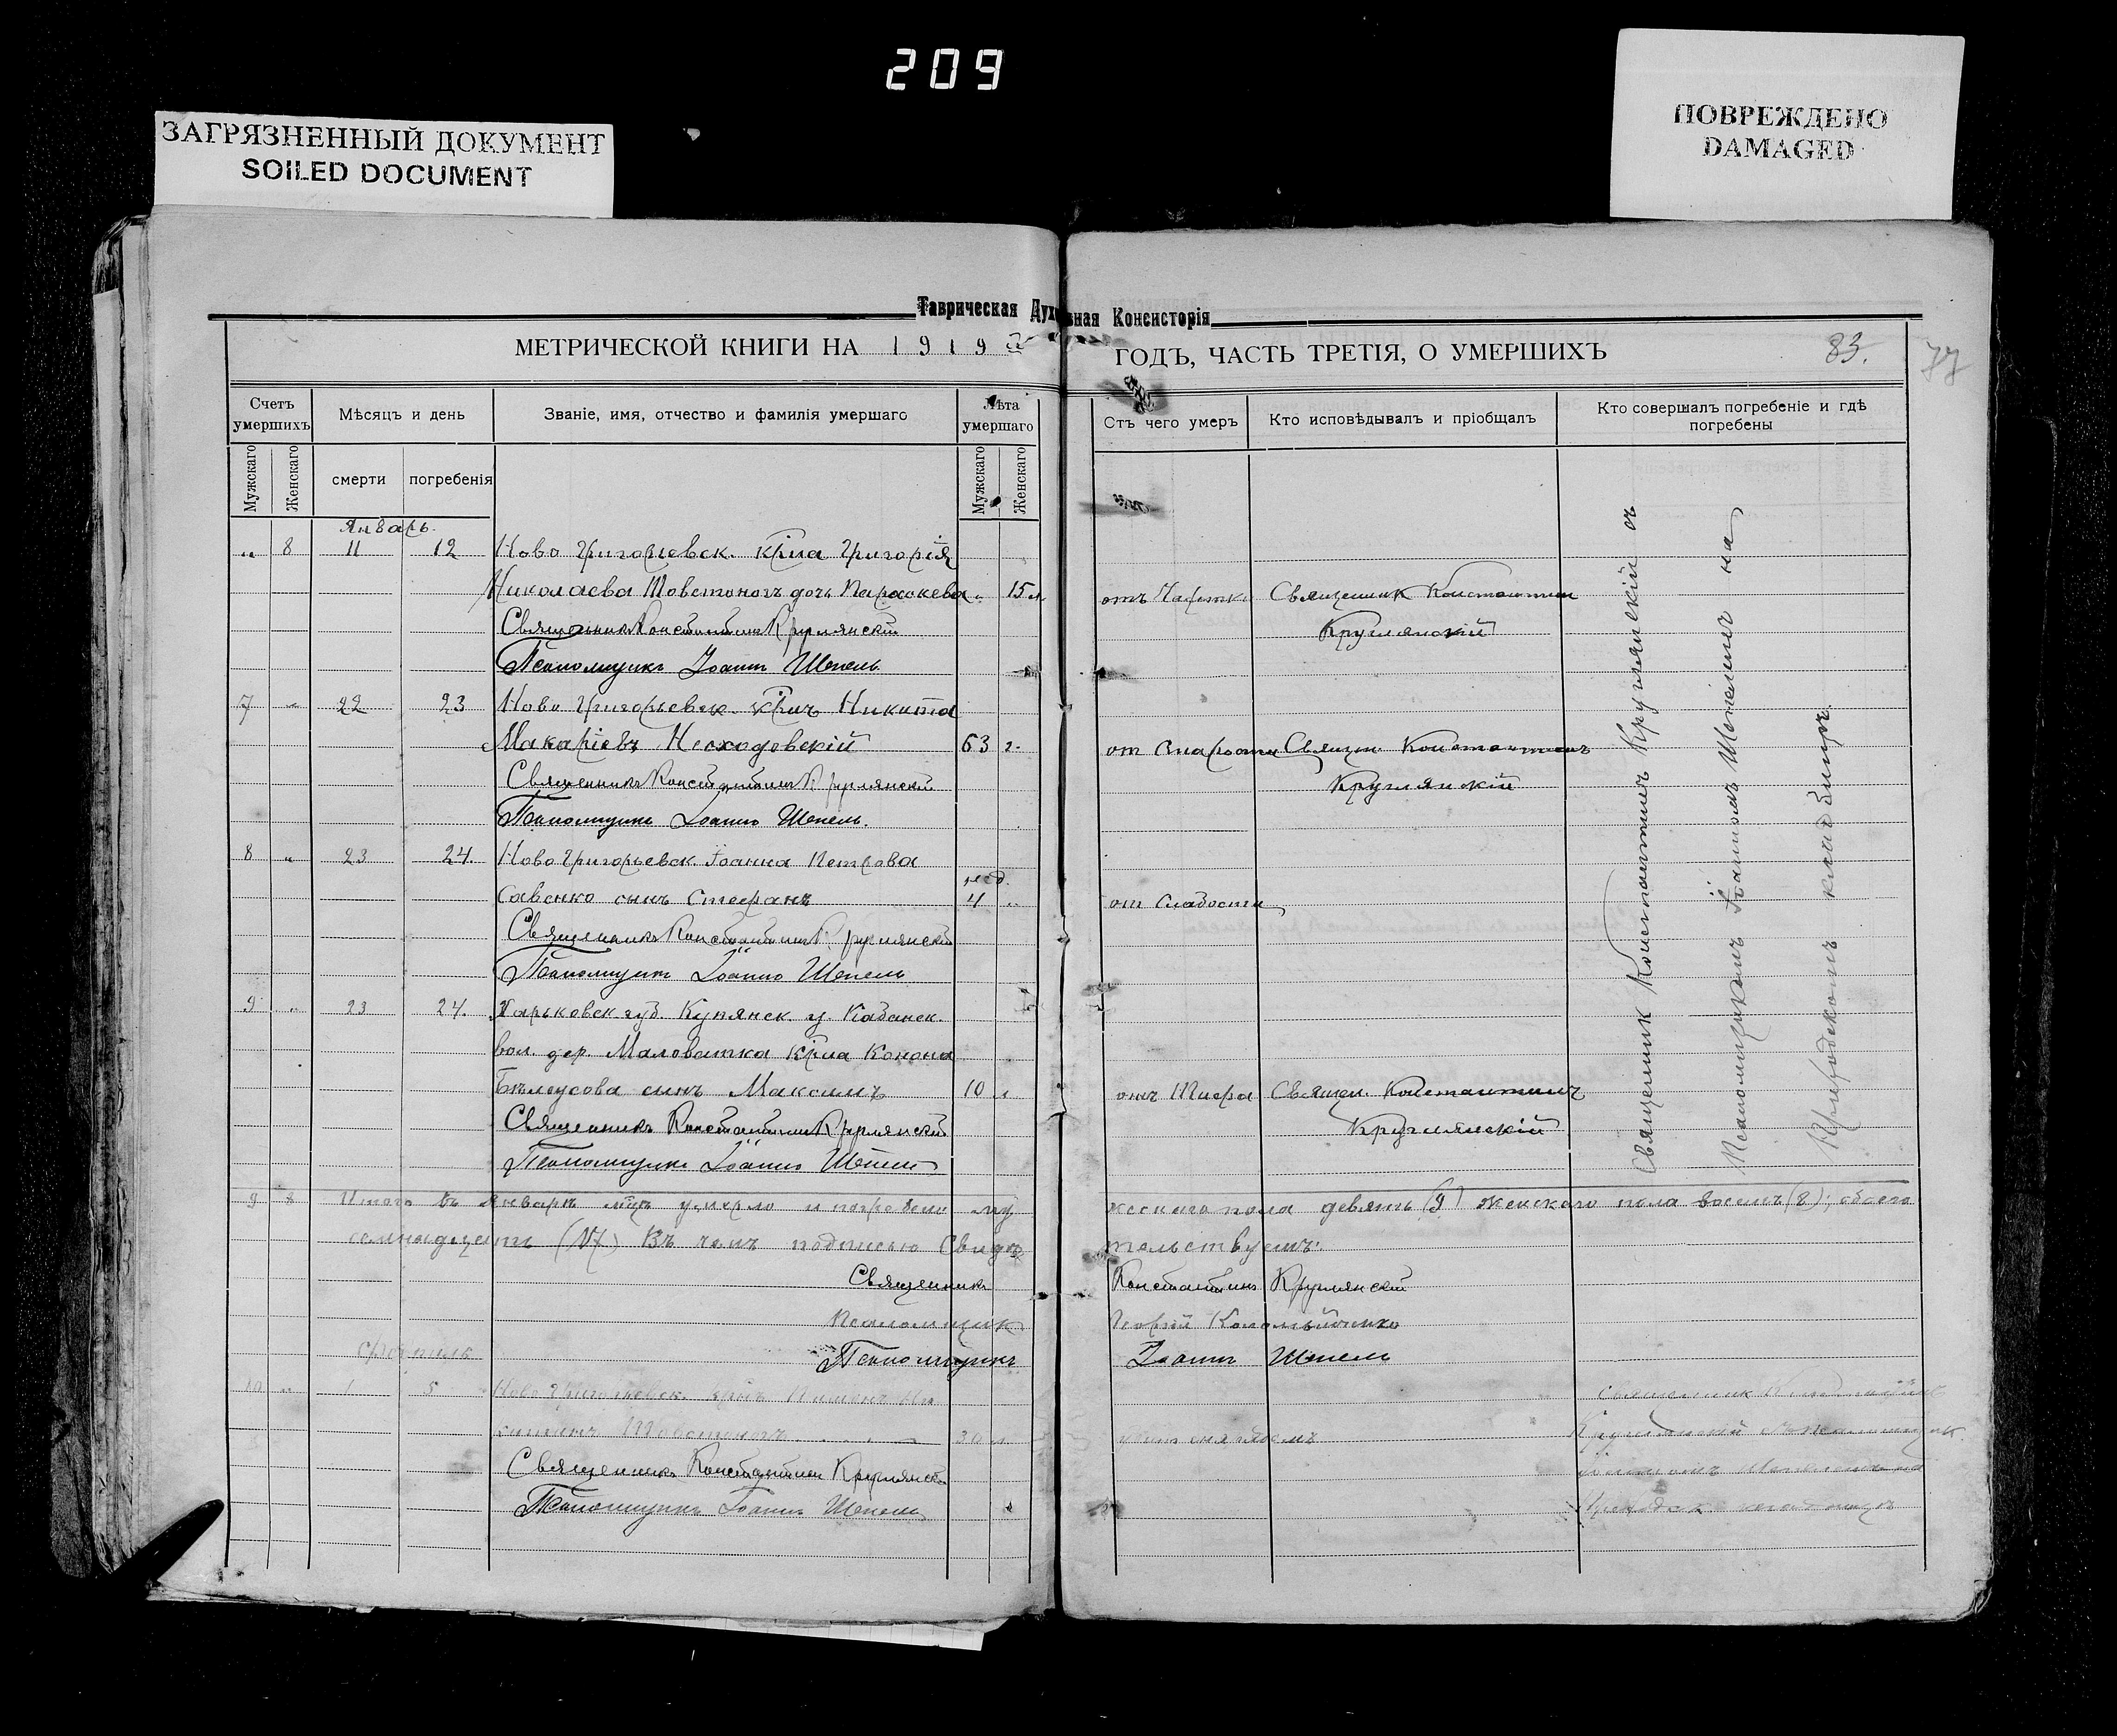 209
ЗАГРЯЗНЕННЫЙ ДОКУМЕНТ
SOILED DOCUMENT
ПОВРЕЖДЕНО
DAMAGED
Таврическая Духовная Консисторія
МЕТРИЧЕСКОЙ КНИГИ НА 1919 ГОДЪ, ЧАСТЬ ТРЕТІЯ, О УМЕРШИХЪ
83.
77
Счетъ умершихъ
Мужскаго
Женскаго
Мѣсяцъ и день
смерти
погребенія
Званіе, имя, отчество и фамилія умершаго
Лѣта умершаго
Мужскаго
Женскаго
Отъ чего умеръ
Кто исповѣдывалъ и пріобщалъ
Кто совершалъ погребеніе и гдѣ погребены
Январь.
„ 8 11 12 Ново Григорьевск. крна Григорія
Николаева Товстоногъ дочь Параскева „ 15 л. отъ Священник Константин
Священникъ Константинъ Круглянскій Круглянскій
Псаломщикъ Іоаннъ Шепель
7 „ 22 23 Ново Григорьевск. крнъ Никита
Макаріевъ Несходовскій 63 г. от Старости Священ. Константинъ
Священникъ Константинъ Круглянскій Круглянскій
Псаломщикъ Іоаннъ Шепель.
8 „ 23 24. Ново Григорьевск Іоанна Петрова
нед.
Савенко сынъ Стефанъ 4 „ от Слабости
Священникъ Константинъ Круглянскій
Псаломщикъ Іоаннъ Шепель
9 „ 23 24. Харьковск. губ. Купянск. у. Кабанск.
вол. дер. Маловатка крна Конона
Бѣлоусова сынъ Максимъ 10 л. отъ Тифа Священ. Константинъ
Священникъ Константинъ Круглянскій Круглянскій
Псаломщикъ Іоаннъ Шепель
Священник Константинъ Круглянскій съ
Псаломщикомъ Іоанномъ Шепелемъ на
Приходскомъ кладбищѣ.
9 8 Итого въ Январѣ мцѣ умерло и погребено мужескаго пола девять (9) женскаго пола восемь (8); обоего
семнадцать (17) Въ чемъ подписью Свидѣтельствуемъ:
Священникъ Константинъ Круглянскій
Псаломщик Коломойченко
Псаломщикъ Іоаннъ Шепель
10 „ 1 5 Ново Григорьевск. крнъ Пименъ священник Константинъ
Товстоногъ 30 л. Круглянскій съ Псаломщик.
Священникъ Константинъ Круглянскій Іоанномъ Шепелемъ на
Псаломщикъ Іоаннъ Шепель Приходск. кладбищѣ